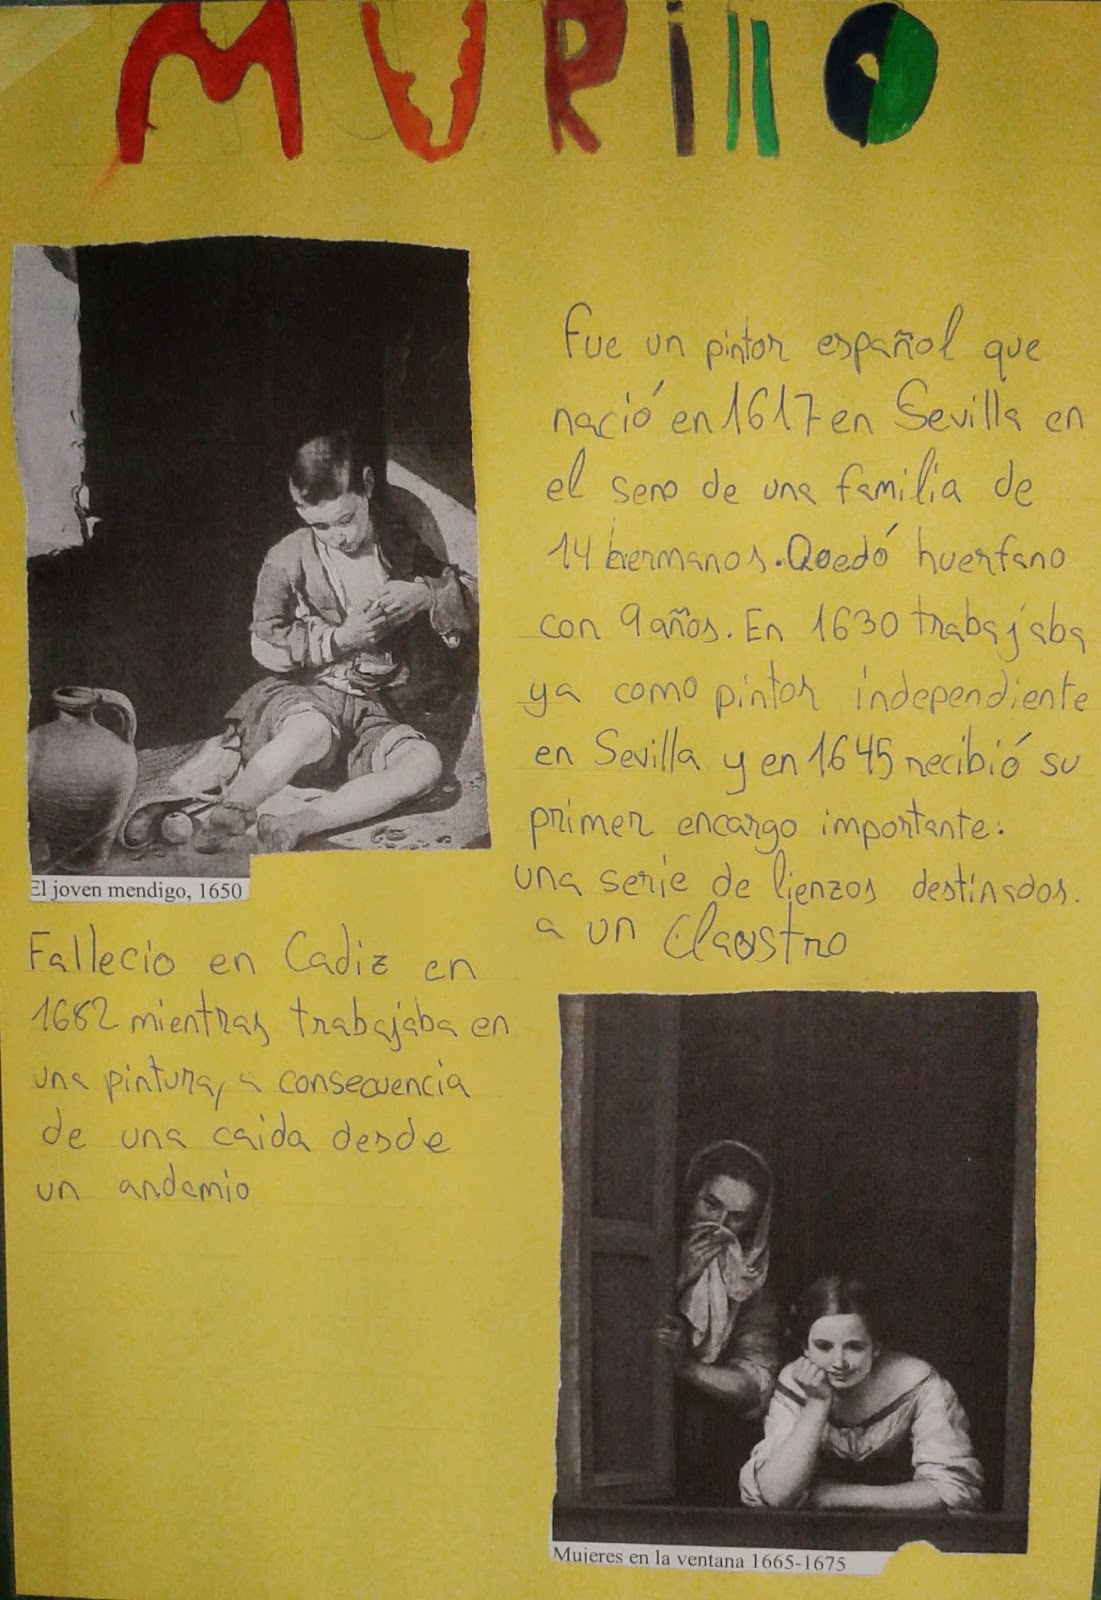 MURillO
fue un pintor español que
nació en 1617 en Sevilla en
el seno de una familia de
14 hermanos. Quedó huerfano
con 9 años. En 1630 trabajaba
ya como pintor independiente
en Sevilla y en 1645 recibió su
primer encargo importante:
una serie de lienzos destinados.
a un Claustro
El joven mendigo, 1650
Fallecio en Cadiz en
1682 mientras trabajaba en
una pintura, a consecuencia
de una caida desde
un andamio
Mujeres en la ventana 1665-1675